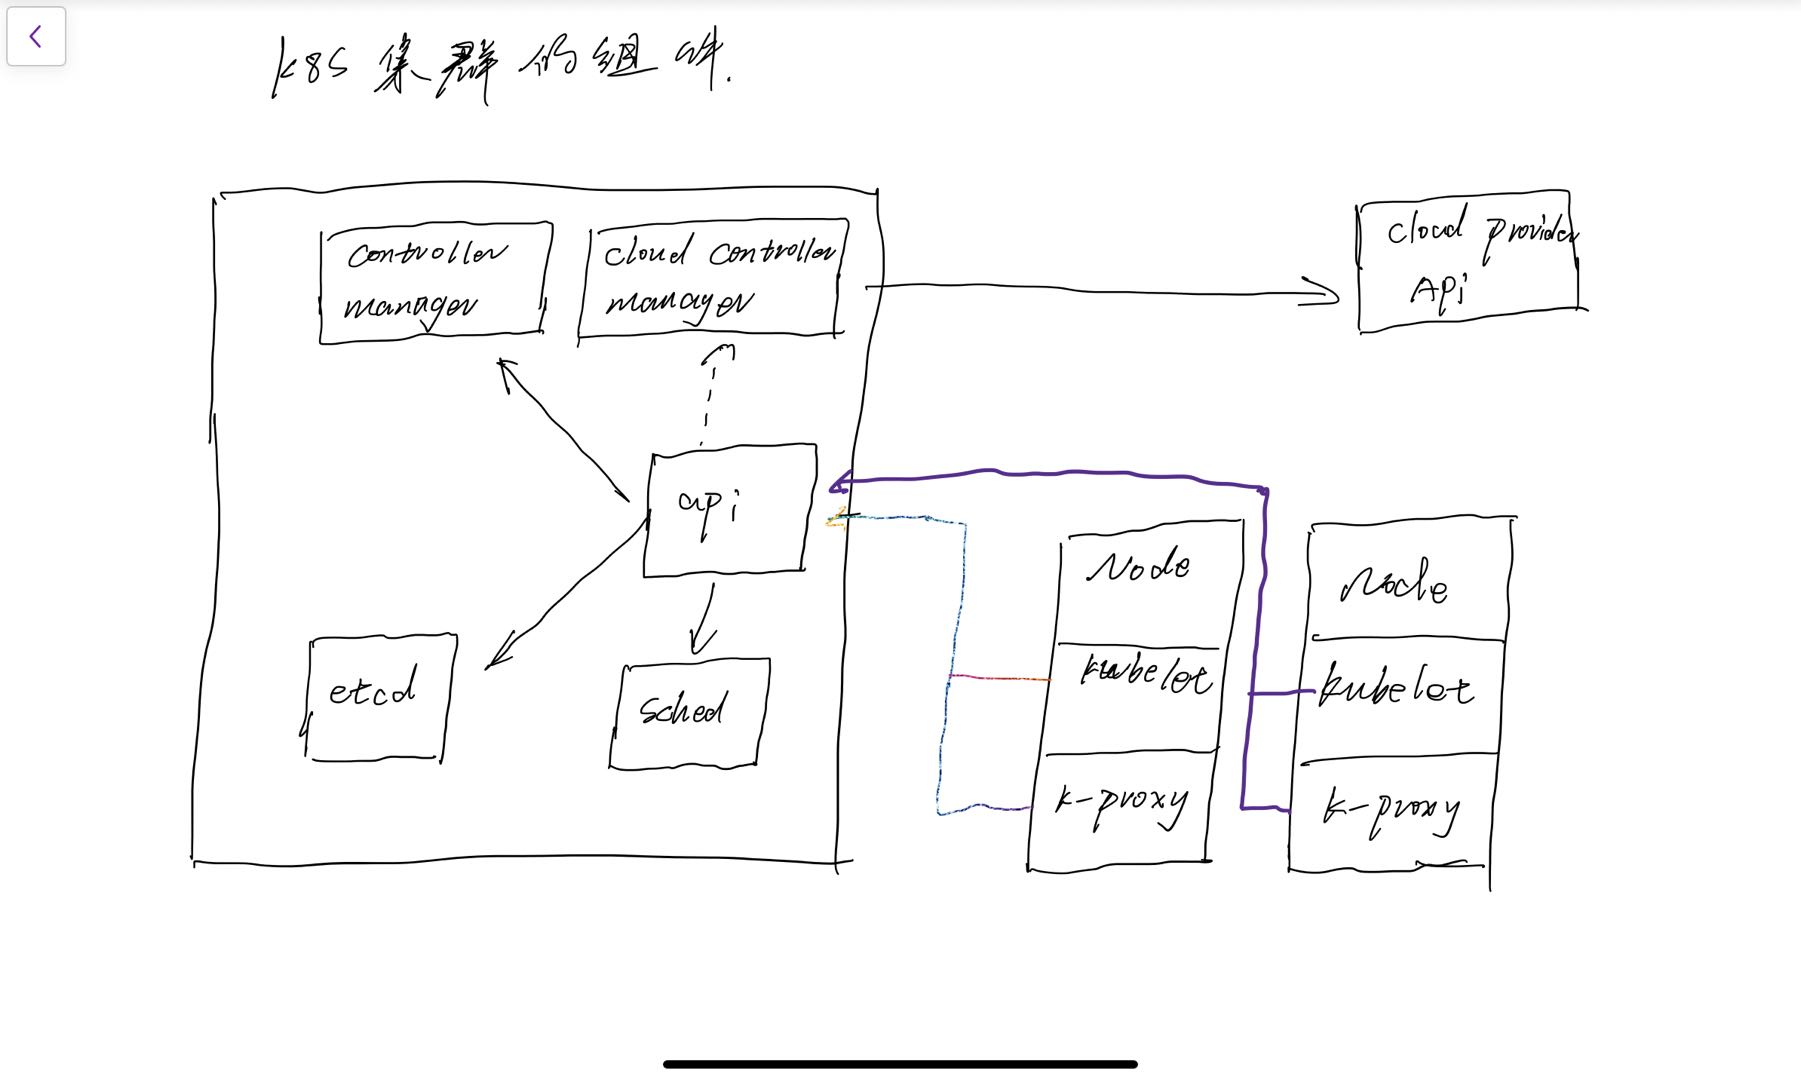 k8s 集群的组件.
controller
manager
cloud controller
manager
cloud provider
Api
api
etcd
sched
Node
kubelet
k-proxy
Node
kubelet
k-proxy